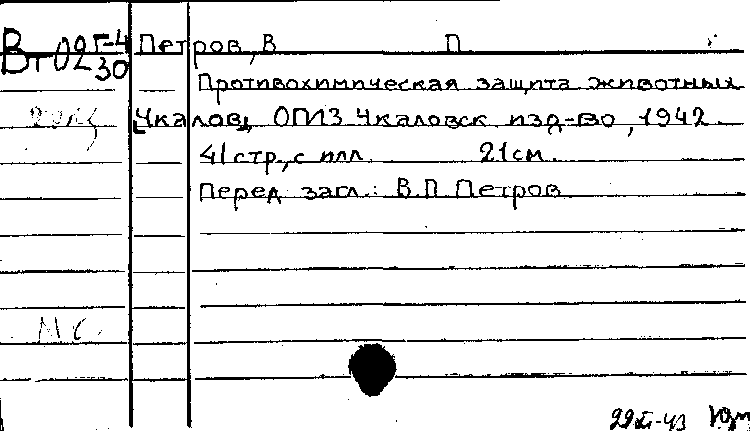 Вт 02 Г-4 Петров, В П.
30
Противохимическая защита животных
Чкалов, ОГИЗ Чкаловск изд-во, 1942.
41 стр., с илл. 21 см.
Перед загл.: В.П. Петров
М С.